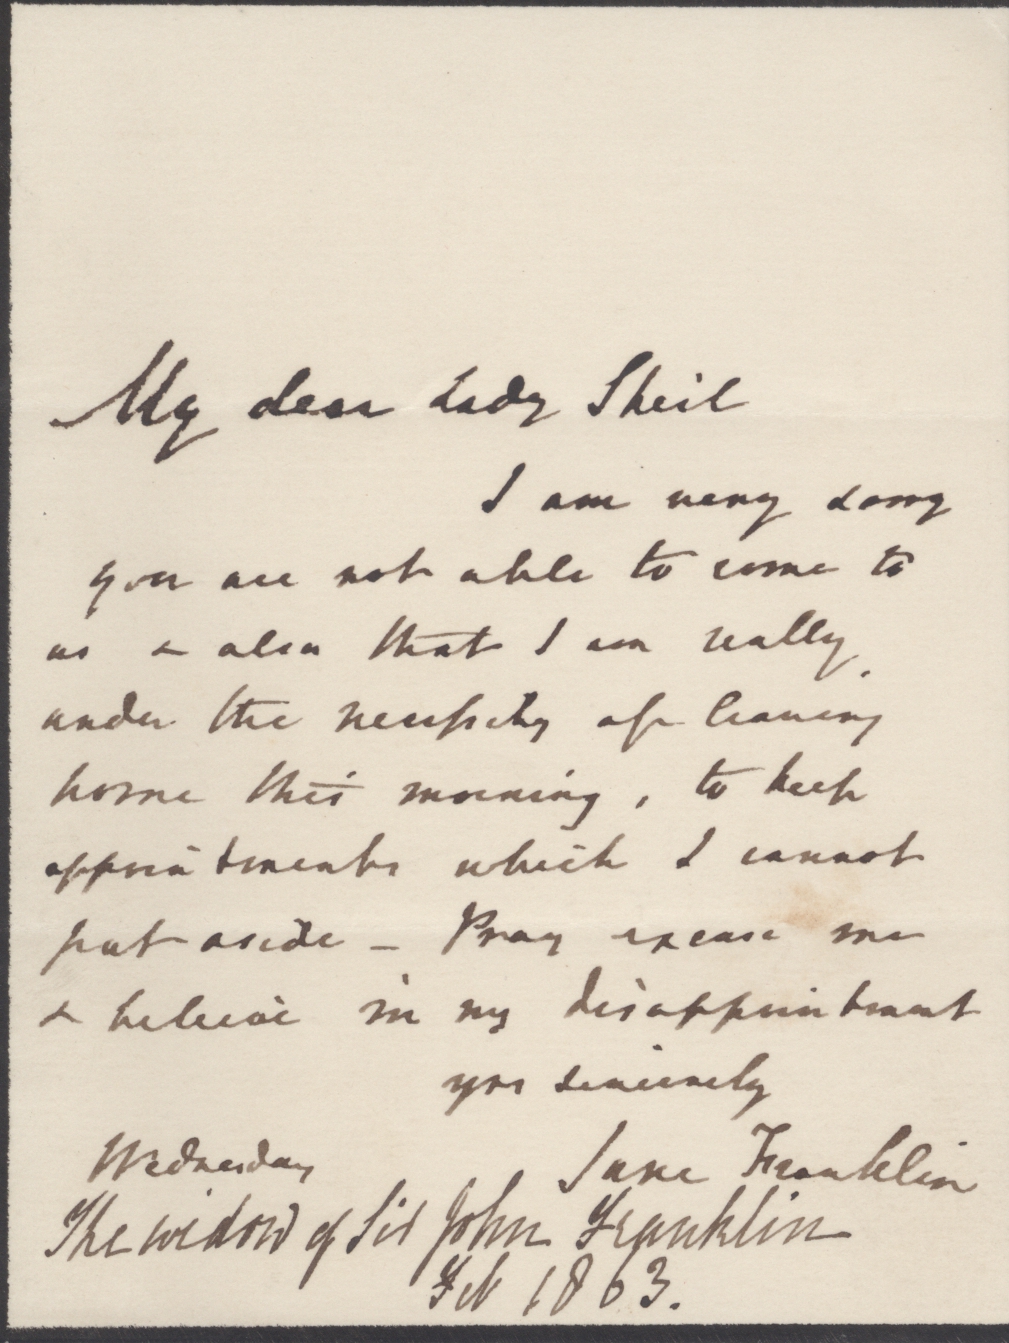 My dear Lady Sheil
I am very sorry
you are not able to come to
us & also that I am really
under the necessity of leaving
home this morning, to keep
appointments which I cannot
put aside – Pray excuse me
& believe in my disappointment
yrs sincerely
Wednesday Jane Franklin
The widow of Sir John Franklin
Feb 1863.